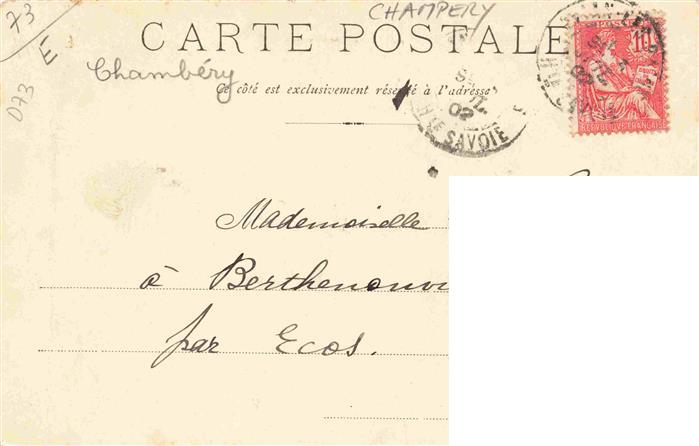 73
CHAMPERY
E
D73
CARTE POSTALE
Chambéry
Ce côté est exclusivement réservé à l'adresse
02
Hte SAVOIE
10
REPUBLIQUE FRANÇAISE
Mademoiselle
à Berthenouv
par Ecos.